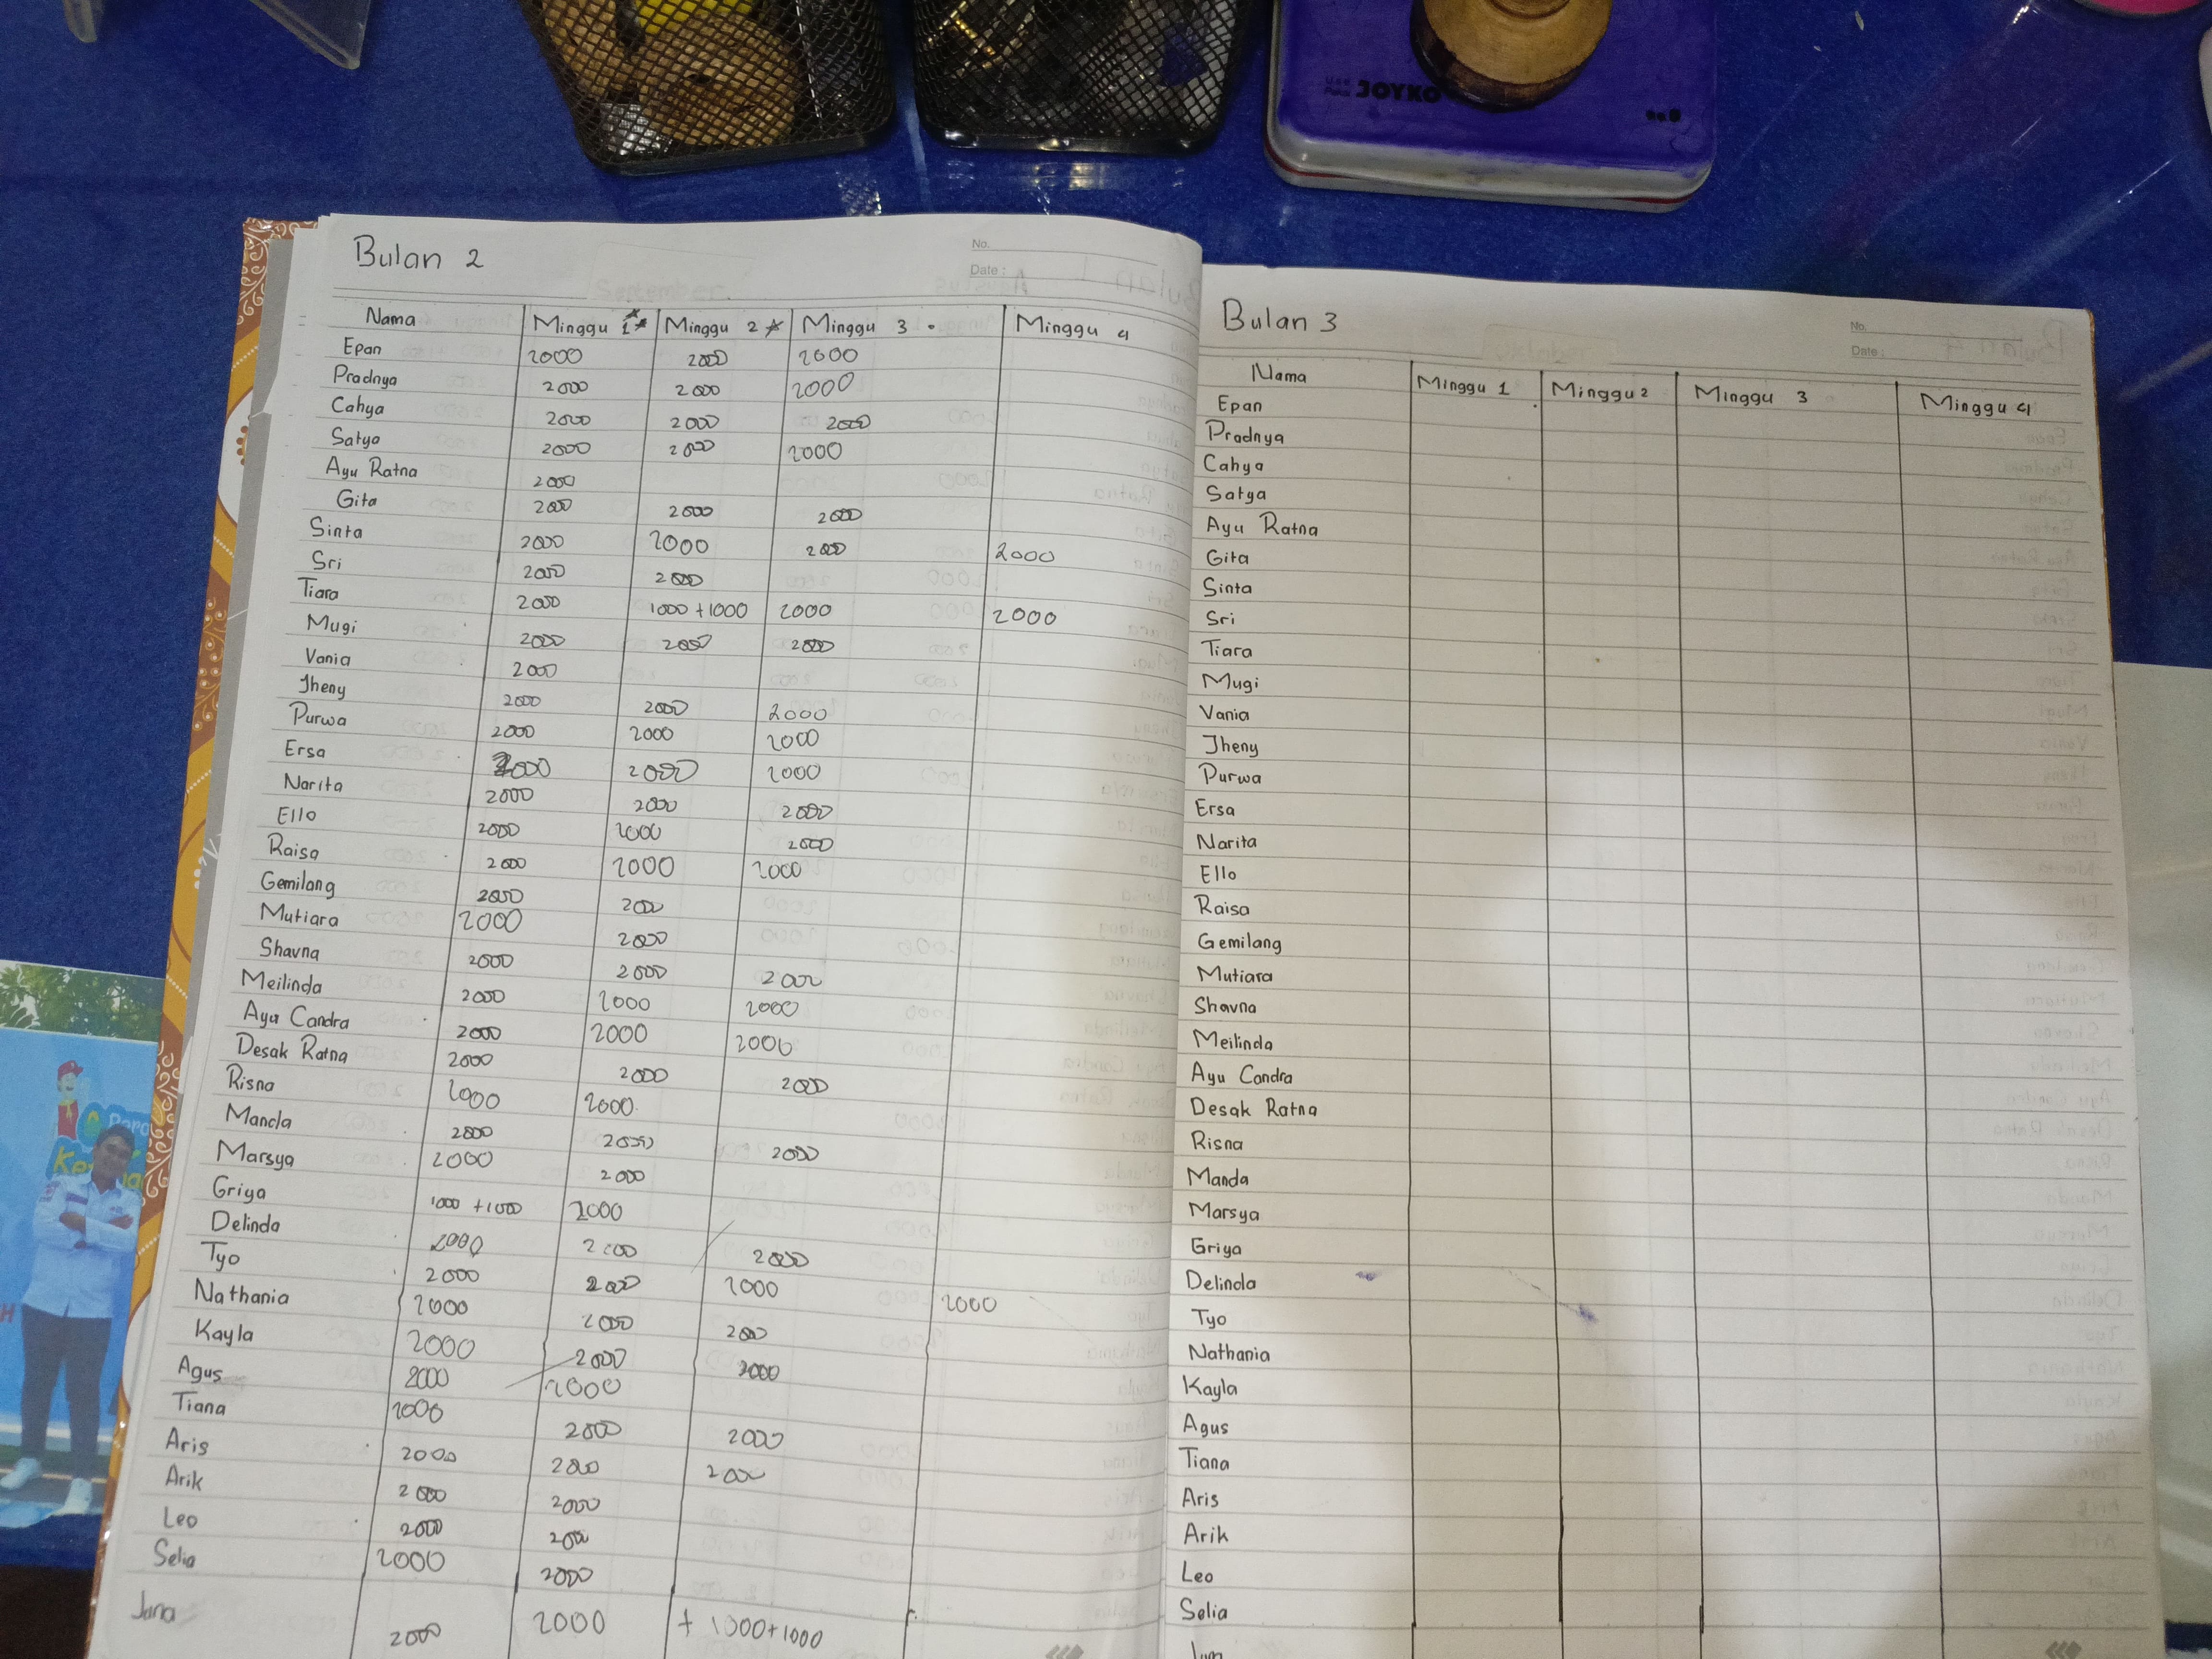 JOYKO
No.
Date :
Bulan 2
Nama Minggu 1 Minggu 2 Minggu 3 Minggu 4
Epan 2000 2000 2000
Pradnya 2000 2000 2000
Cahya 2000 2000 2000
Satya 2000 2000 2000
Ayu Ratna 2000
Gita 2000 2000 2000
Sinta 2000 2000 2000 2000
Sri 2000 2000
Tiara 2000 1000 + 1000 2000 2000
Mugi 2000 2000 2000
Vania 2000
Jheny 2000 2000 2000
Purwa 2000 2000 2000
Ersa 2000 2000 2000
Narita 2000 2000 2000
Ello 2000 2000 2000
Raisa 2000 2000 2000
Gemilang 2000 2000
Mutiara 2000 2000
Shavna 2000 2000 2000
Meilinda 2000 2000 2000
Ayu Candra 2000 2000 2000
Desak Ratna 2000 2000 2000
Risna 2000 2000
Manda 2000 2000 2000
Marsya 2000 2000
Griya 1000 + 1000 2000
Delinda 2000 2000 2000
Tyo 2000 2000 2000
Nathania 2000 2000 2000 2000
Kayla 2000 2000 2000
Agus 2000 2000
Tiana 2000 2000 2000
Aris 2000 2000 2000
Arik 2000 2000
Leo 2000 2000
Selia 2000 2000
Jana 2000 2000 + 1000 + 1000
No.
Date :
Bulan 3
Nama Minggu 1 Minggu 2 Minggu 3 Minggu 4
Epan
Pradnya
Cahya
Satya
Ayu Ratna
Gita
Sinta
Sri
Tiara
Mugi
Vania
Jheny
Purwa
Ersa
Narita
Ello
Raisa
Gemilang
Mutiara
Shavna
Meilinda
Ayu Candra
Desak Ratna
Risna
Manda
Marsya
Griya
Delinda
Tyo
Nathania
Kayla
Agus
Tiana
Aris
Arik
Leo
Selia